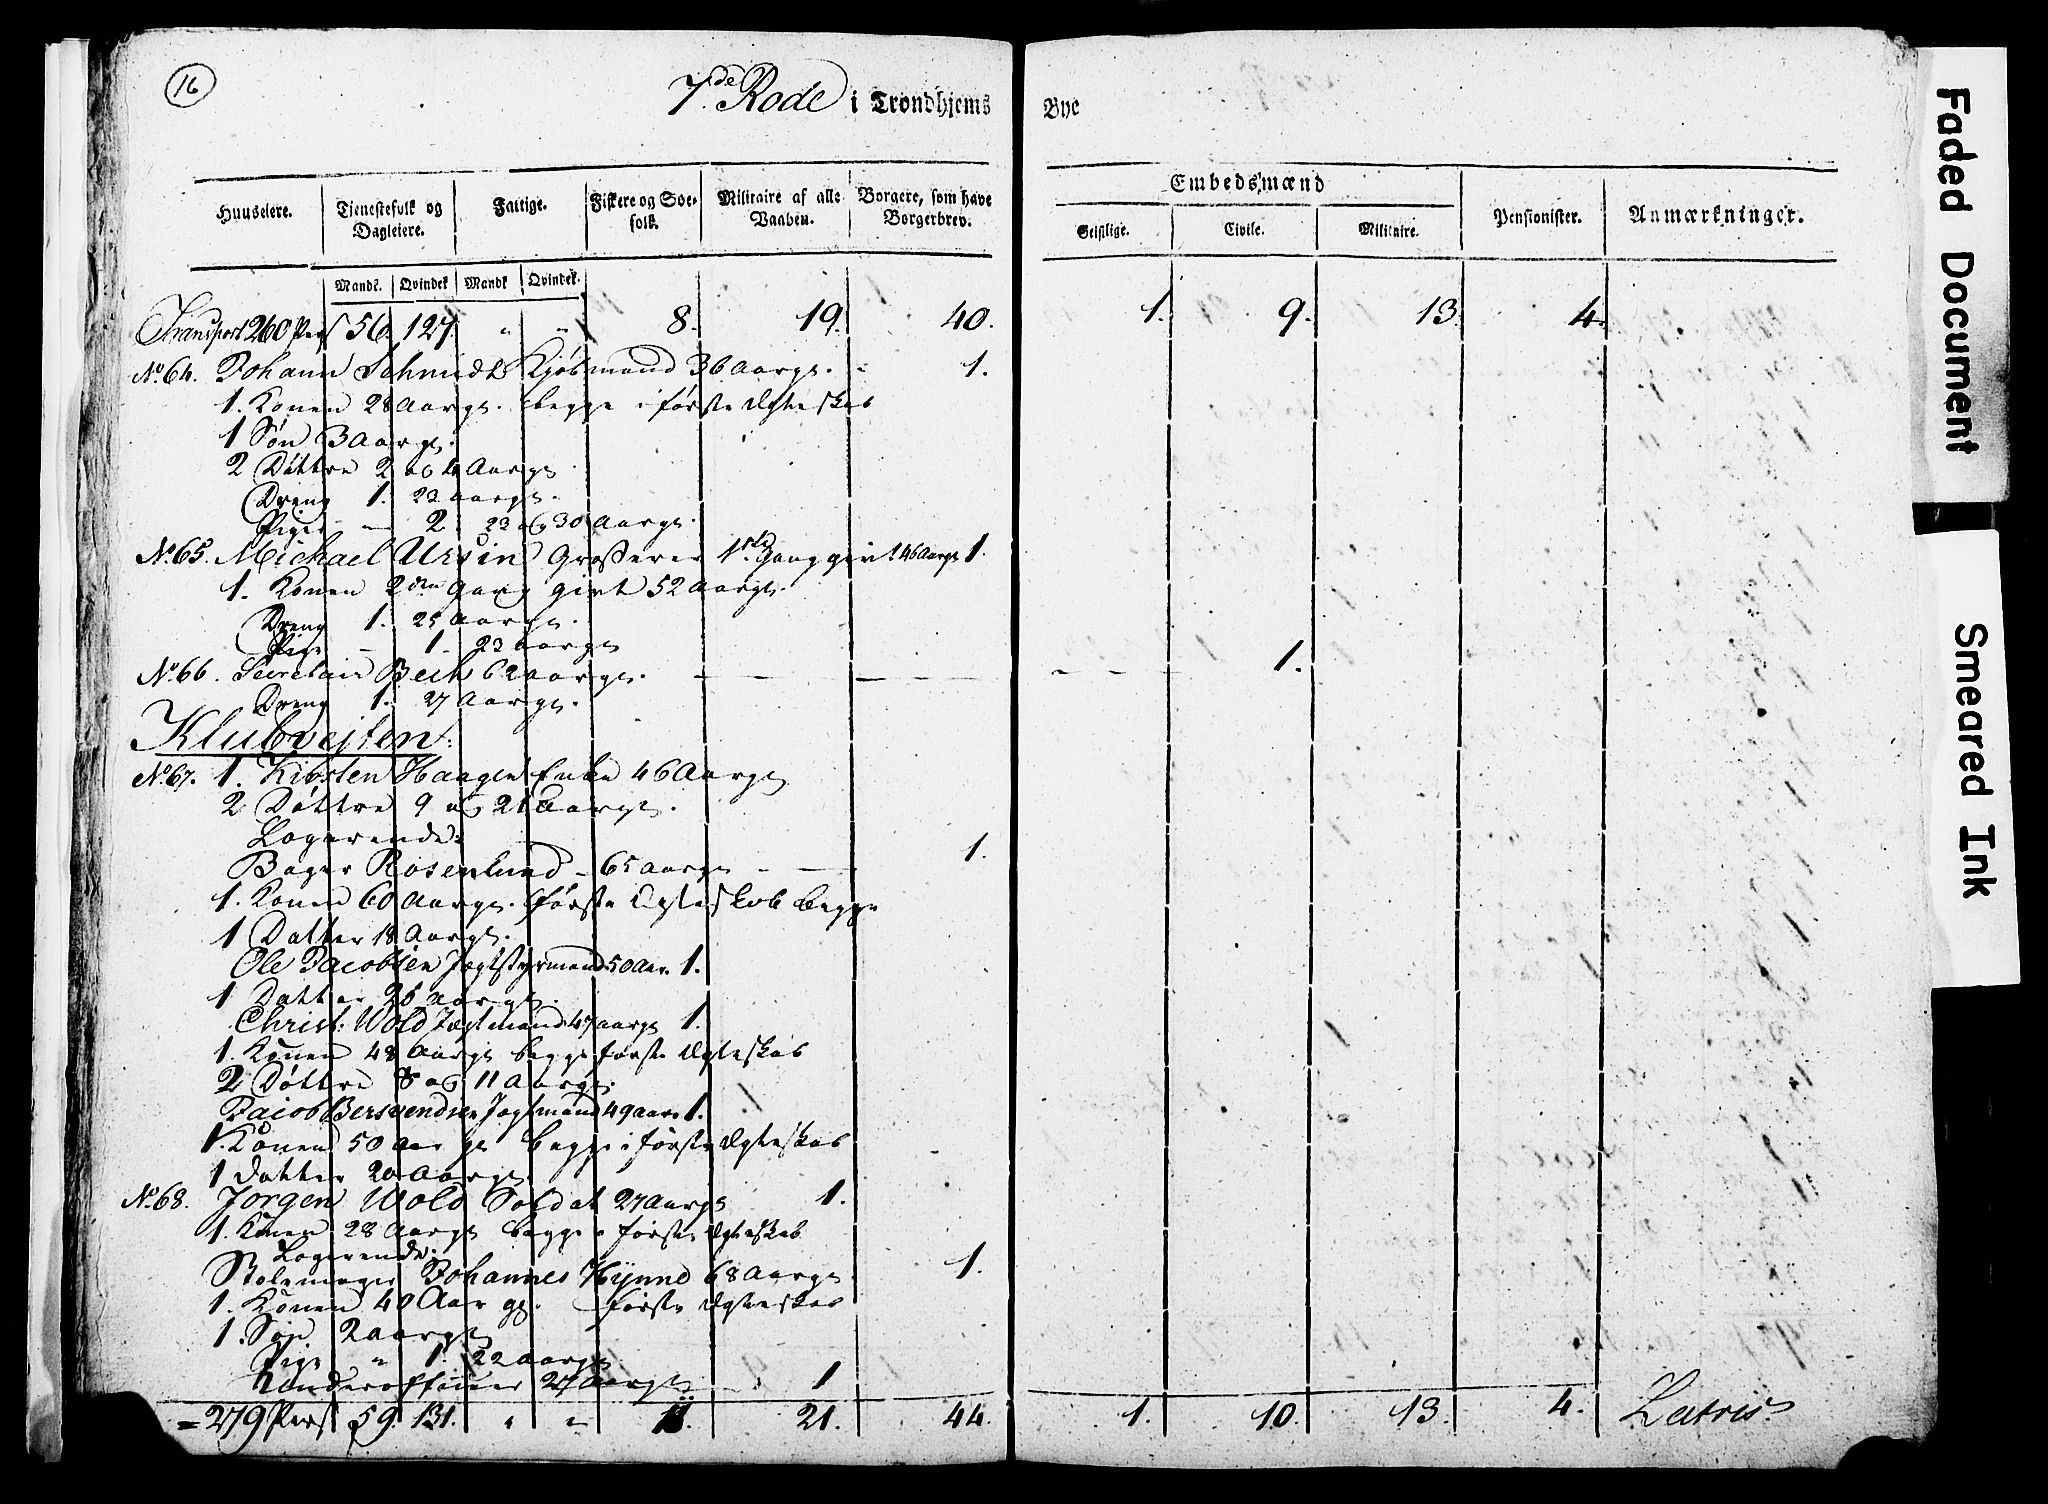 16
7de Rode i Trondhjems Bye
Huuseiere. Tjenestefolk og Dagleiere. Fattige. Fiskere og Søefolk. Militaire af alle Vaaben. Borgere, som have Borgerbrev. Embedsmænd Pensionister. Anmærkninger.
Geistlige. Civile. Militaire.
Mandk. Qvindek Mandk Qvindek.
Transport 260 Pers 56. 127. " " 8. 19. 40. 1. 9. 13. 4.
No. 64. Johann Schmidt Kjøbmand 36 Aarge. - 1.
1. Konen 28 Aarge. begge i første Ægteskab
1 Søn 3 Aarge.
2 Døttre 2 og 4 Aarge
Dreng 1. 23 aarge.
Piger - 2. 23 og 30 Aarge.
No. 65. Michael Ursin Grosserer 1ste Gang givt 46 Aarge 1.
1. Konen 2den Gang givt 52 Aarge.
Dreng 1. 25 Aarge.
Pige - 1. 23 aarge
No. 66. Secretair Bech 62 aarge. - - - - - - 1.
Dreng 1. 27 Aarge.
Klubvejten:
No. 67. 1. Kibsten Haagen Enke 46 Aarge
2 Døttre 9 og 21 Aarge.
Logerende:
Bager Rosenlund - 65 aarge - - 1.
1. Konen 60 Aarge. første Ægteskab begge
1 Datter 18 Aarge.
Ole Jacobsen Jægtstyrmand 50 Aar. 1.
1 Datter 25 aarge.
Christ: Wold Jægtmand 47 aarge 1.
1. Konen 48 Aarge begge første Ægteskab
2 Døttre 8 og 11 Aarge.
Jacob Bersvendsen Jægtmand 49 Aar. 1.
1. Konen 50 Aarge begge i første Ægteskab
1 Datter 20 Aarge.
No. 68. Jørgen Wold Soldat 27 Aarge 1.
1. Konen 28 Aarge begge i første Ægteskab
Logerende:
Stolemager Johannes Hynne 68 Aarge 1.
1. Konen 40 Aarge. første Ægteskab
1. Søn 2 aarge
Pige " 1. 22 aarge
Underofficier 27 Aarge - 1
= 279 Pers 59. 131. " " 11. 21. 44. 1. 10. 13. 4. Latris
Faded Document
Smeared Ink